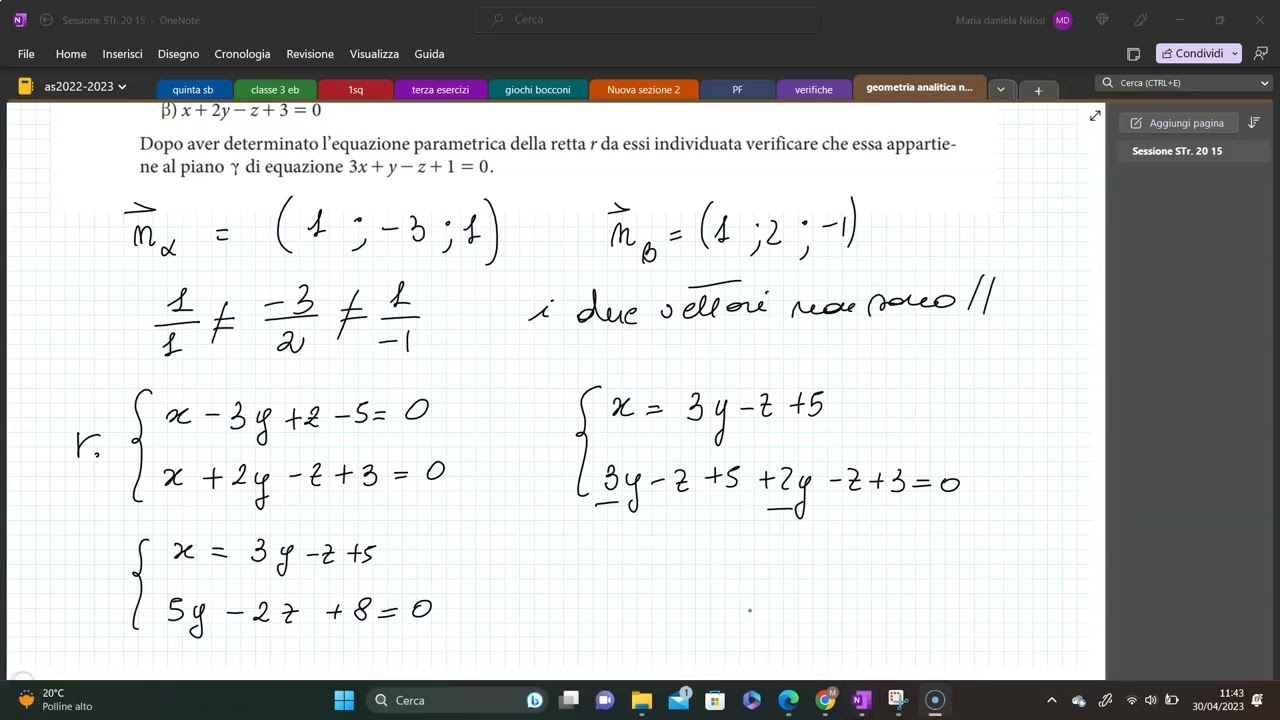 Sessione STr. 20 15 - OneNote
Cerca
Maria daniela Nifosi MD
File Home Inserisci Disegno Cronologia Revisione Visualizza Guida
Condividi
as2022-2023
quinta sb classe 3 eb 1sq terza esercizi giochi bocconi Nuova sezione 2 PF verifiche geometria analitica n... +
Cerca (CTRL+E)
Aggiungi pagina
Sessione STr. 20 15
β) x + 2y − z + 3 = 0
Dopo aver determinato l'equazione parametrica della retta r da essi individuata verificare che essa appartie-
ne al piano γ di equazione 3x + y − z + 1 = 0.
n⃗α = (1 ; -3 ; 1) n⃗β = (1 ; 2 ; -1)
1/1 ≠ -3/2 ≠ 1/-1 i due vettori non sono //
r. { x - 3y + z - 5 = 0
x + 2y - z + 3 = 0
{ x = 3y - z + 5
3y - z + 5 + 2y - z + 3 = 0
{ x = 3y - z + 5
5y - 2z + 8 = 0
20°C
Polline alto
Cerca
1
M
11:43
30/04/2023